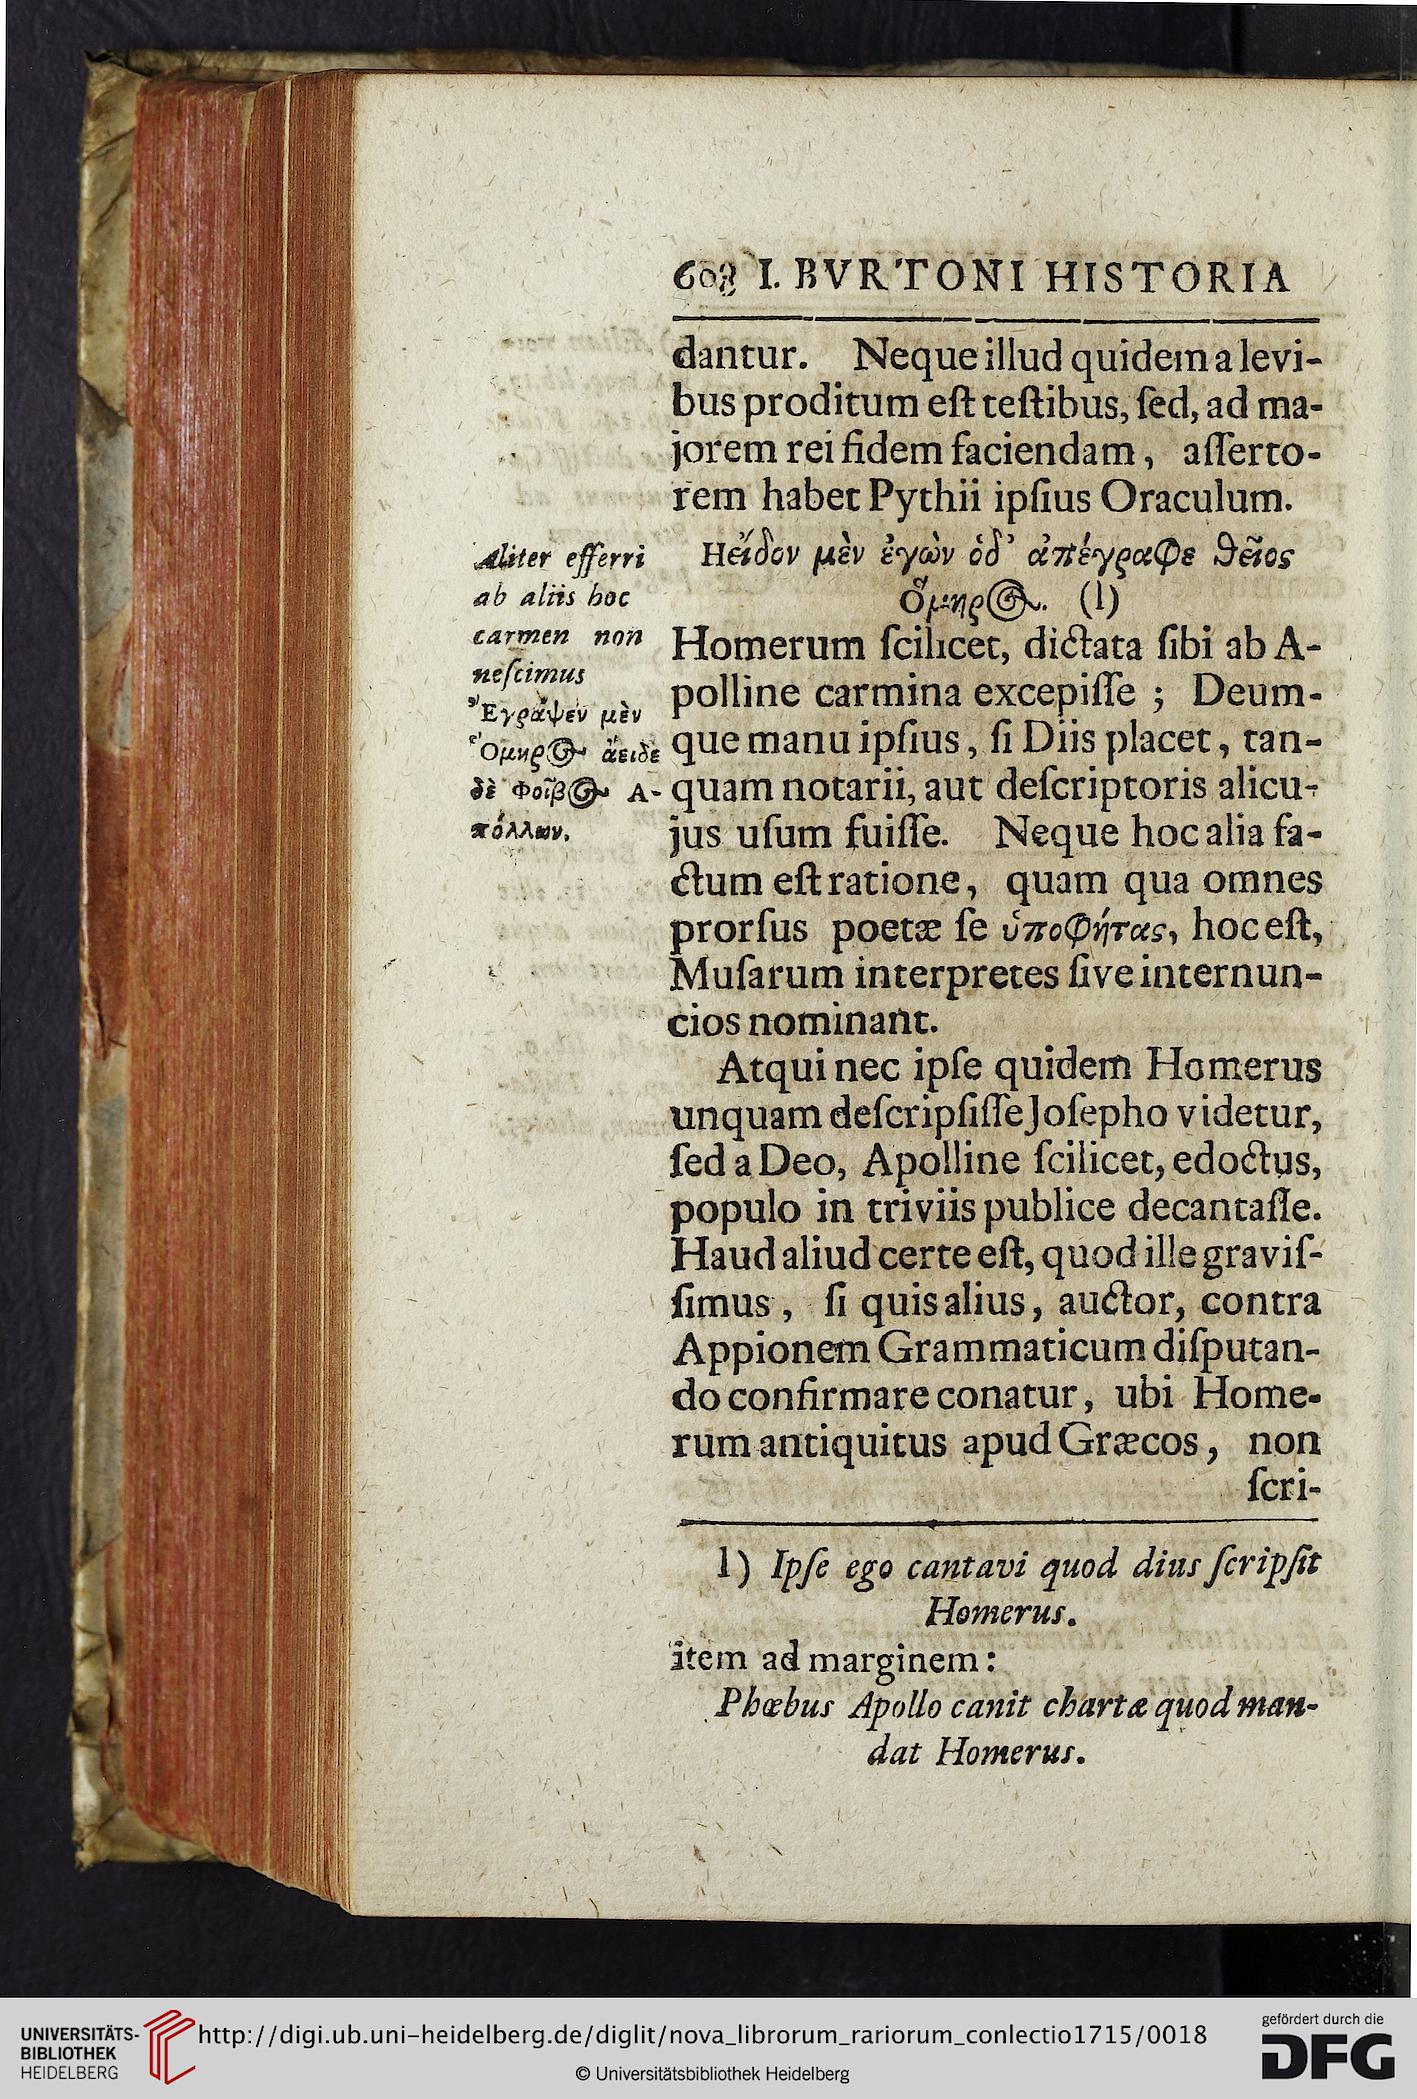 608 I. BVRTONI HISTORIA
dantur. Neque illud quidem a levi-
bus proditum eſt teſtibus, ſed, ad ma-
jorem rei fidem faciendam, aſſerto-
rem habet Pythii ipſius Oraculum.
Ηείδον μὲν ἐγὼν ὁδ᾽ ἀπέγραφε θεῖος
Ὅμηρος. (l)
Homerum ſcilicet, dictata ſibi ab A-
polline carmina excepiſſe ; Deum-
que manu ipſius, ſi Diis placet, tan-
quam notarii, aut deſcriptoris alicu-
jus uſum fuiſſe. Neque hoc alia fa-
ctum eſt ratione, quam qua omnes
prorſus poetæ ſe ὑποφήτας, hoc eſt,
Muſarum interpretes ſive internun-
cios nominant.
Atqui nec ipſe quidem Homerus
unquam deſcripſiſſe Joſepho videtur,
ſed a Deo, Apolline ſcilicet, edoctus,
populo in triviis publice decantaſſe.
Haud aliud certe eſt, quod ille graviſ-
ſimus, ſi quis alius, auctor, contra
Appionem Grammaticum diſputan-
do confirmare conatur, ubi Home-
rum antiquitus apud Græcos, non
ſcri-
Aliter efferri
ab aliis hoc
carmen non
neſcimus
Ἔγραψεν μὲν
Ὅμηρος ἄειδε
δὲ Φοῖβος Α-
πόλλων.
l) Ipſe ego cantavi quod dius ſcripſit
Homerus.
item ad marginem:
Phœbus Apollo canit chartæ quod man-
dat Homerus.
UNIVERSITÄTS-
BIBLIOTHEK
HEIDELBERG
http://digi.ub.uni-heidelberg.de/diglit/nova_librorum_rariorum_conlectio1715/0018
© Universitätsbibliothek Heidelberg
gefördert durch die
DFG